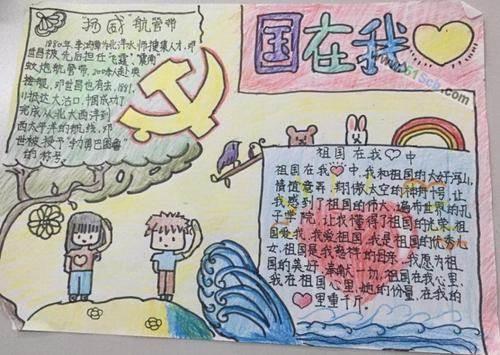 扬威"航管带
1880年,李鸿章为北洋水师搜集人才,邓
世昌
先后担任"飞霆""镇南"
蚊炮船管带,
舰,邓世昌也有去,1881,
抵达大沽口,
完成从北大西洋到
西太平洋的航线,邓
世被授予"勃勇巴图鲁"
的称号。
国在我
www.51Scb.com
祖国在我中
祖国在我中,我和祖国的大好河山,
情谊意弄,翔傲太空的神舟十号,让
我感到了祖国的伟大,遍布世界的孔
子学院,让我懂得了祖国的光荣,祖
国爱我,我爱祖国,我是祖国的优秀儿
女,祖国是我慈祥的母亲,我愿为祖
国的美好,奉献一切,祖国在我心里,
我在祖国心里,她的份量,在我的
里重千斤。